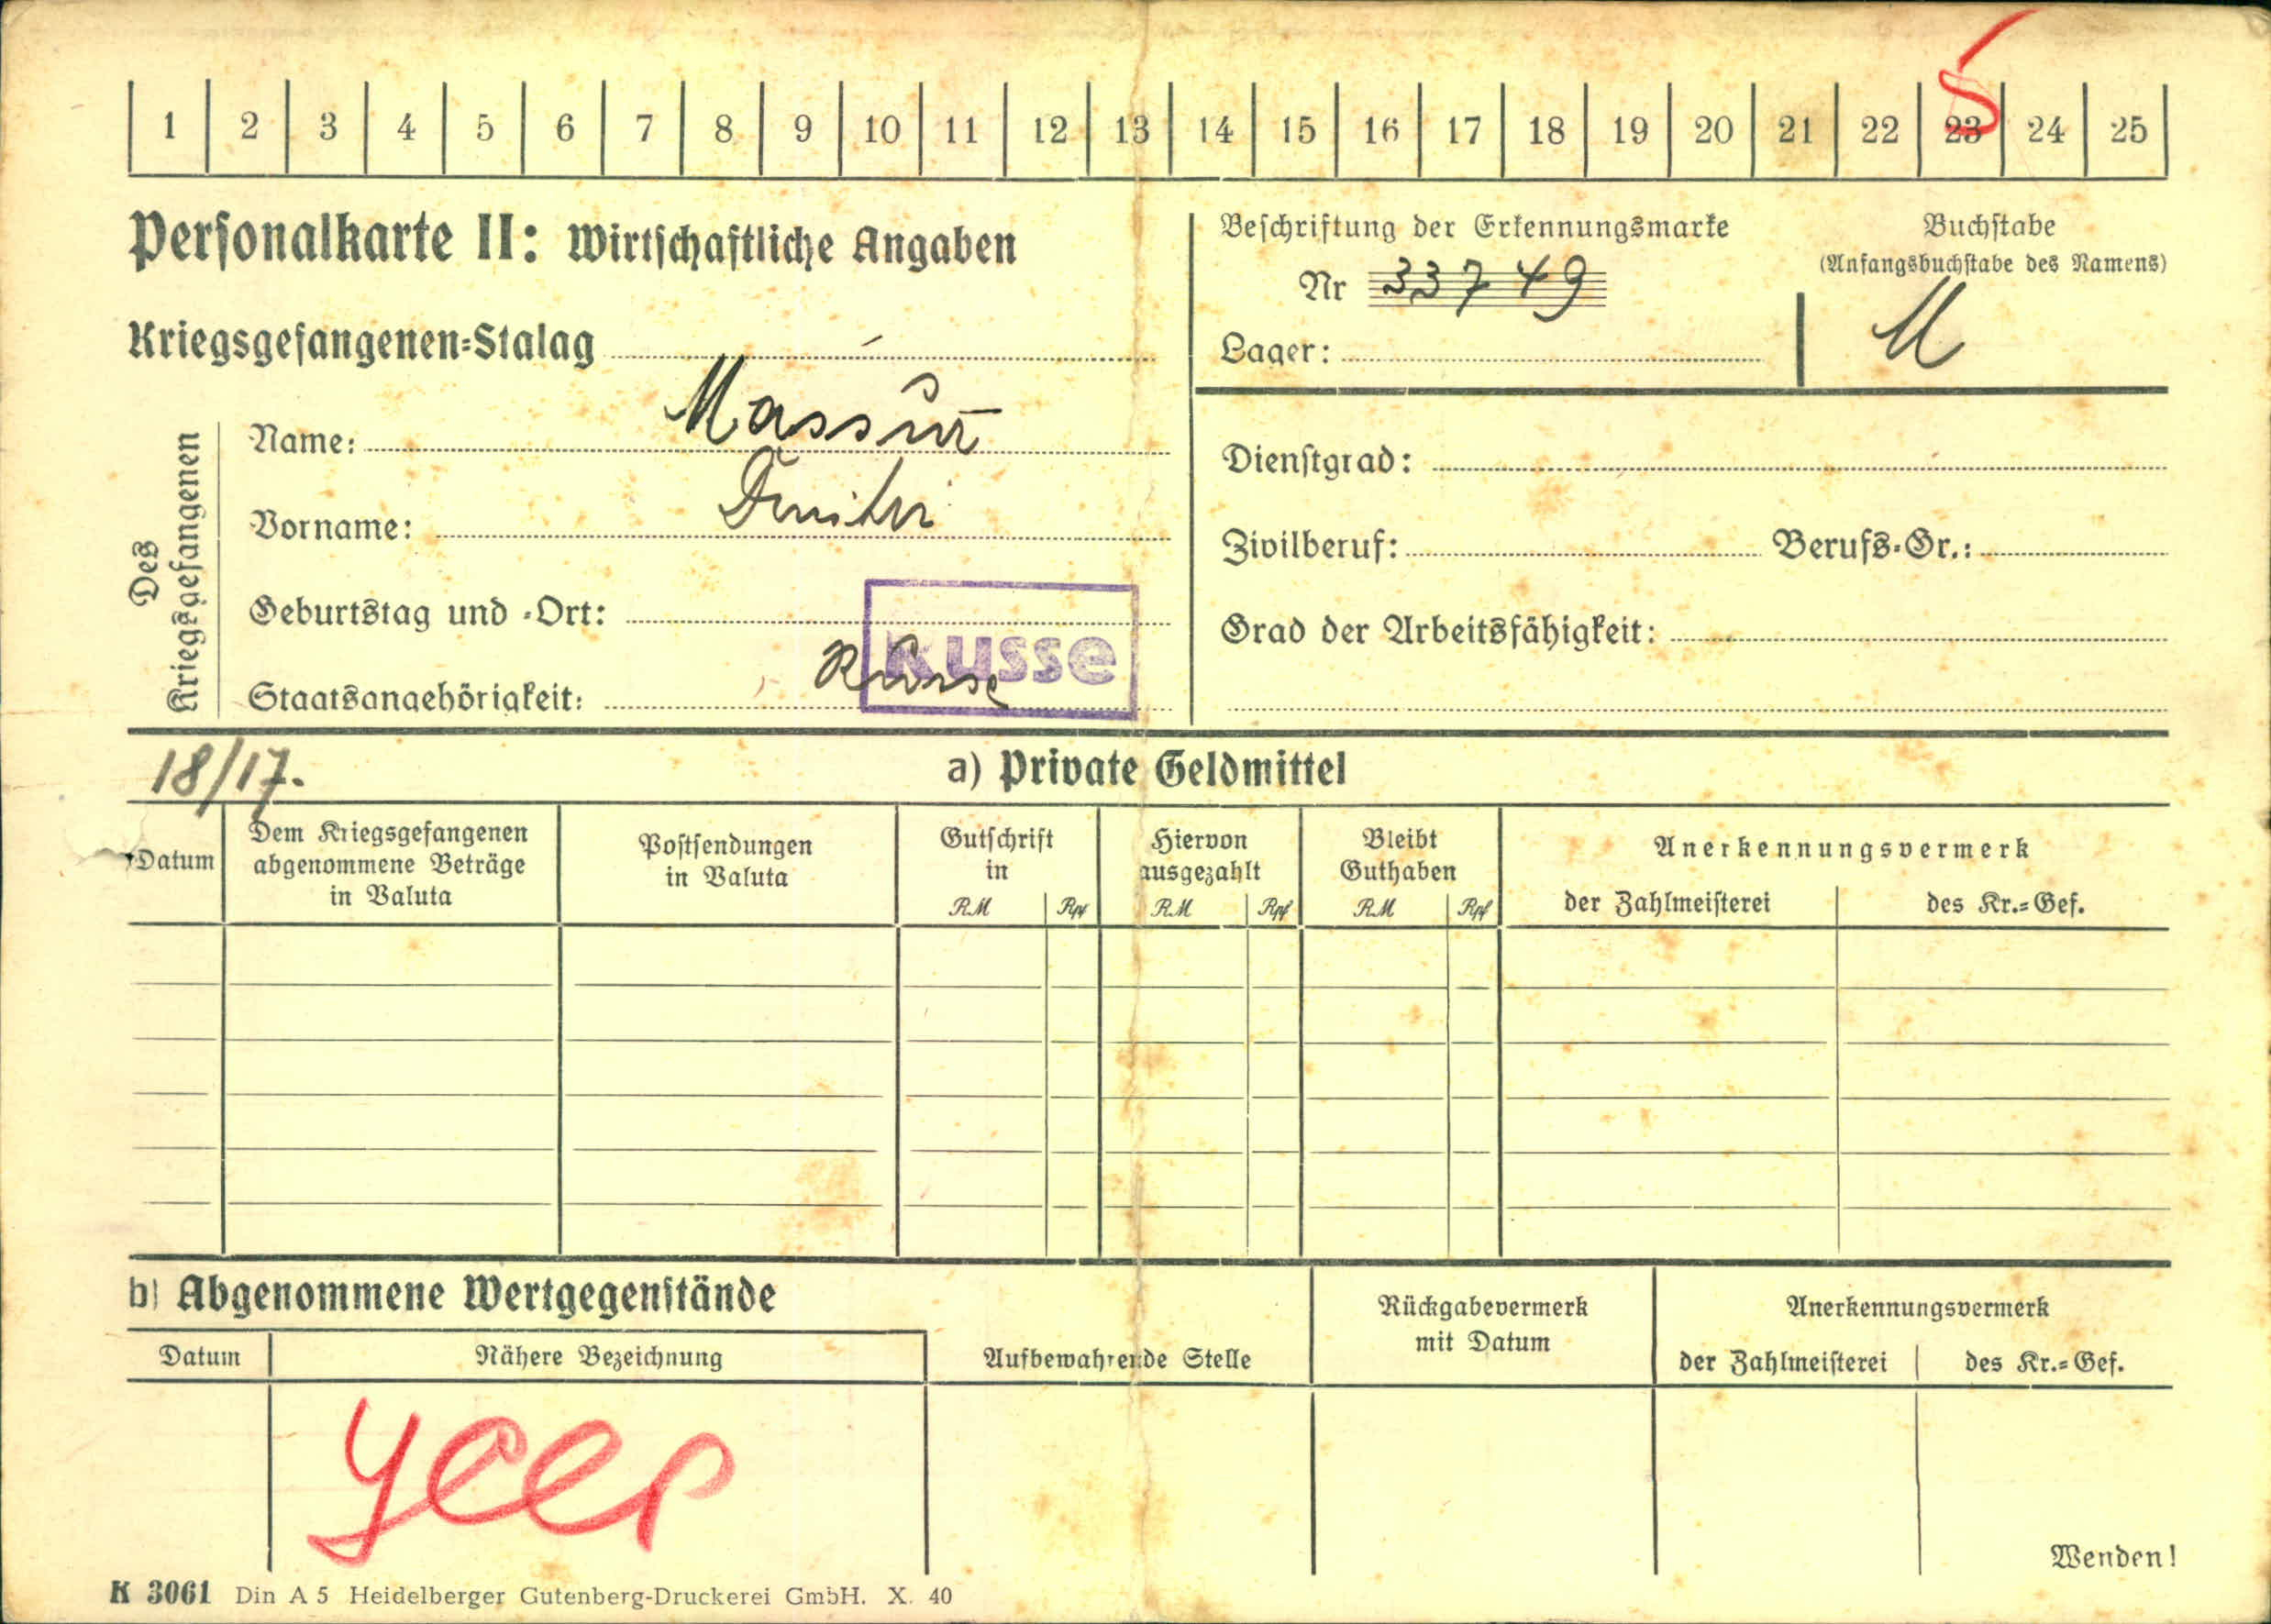 5
1 2 3 4 5 6 7 8 9 10 11 12 13 14 15 16 17 18 19 20 21 22 23 24 25
Personalkarte II: Wirtschaftliche Angaben
Beschriftung der Erkennungsmarke
Nr 33749
Lager:
Buchstabe
(Anfangsbuchstabe des Namens)
M
Kriegsgefangenen=Stalag
Des
Kriegsgefangenen
Name: Massur
Vorname: Dmitri
Geburtstag und -Ort:
Staatsangehörigkeit: Russe
Russe
Dienstgrad:
Zivilberuf: Berufs-Gr.:
Grad der Arbeitsfähigkeit:
18/17.
a) Private Geldmittel
Datum
Dem Kriegsgefangenen
abgenommene Beträge
in Valuta
Postsendungen
in Valuta
Gutschrift
in
RM Rpf
Hiervon
ausgezahlt
RM Rpf
Bleibt
Guthaben
RM Rpf
Anerkennungsvermerk
der Zahlmeisterei des Kr.=Gef.
b) Abgenommene Wertgegenstände
Datum Nähere Bezeichnung
Aufbewahrende Stelle
Rückgabevermerk
mit Datum
Anerkennungsvermerk
der Zahlmeisterei des Kr.=Gef.
Wenden!
K 3061 Din A 5 Heidelberger Gutenberg-Druckerei GmbH. X. 40